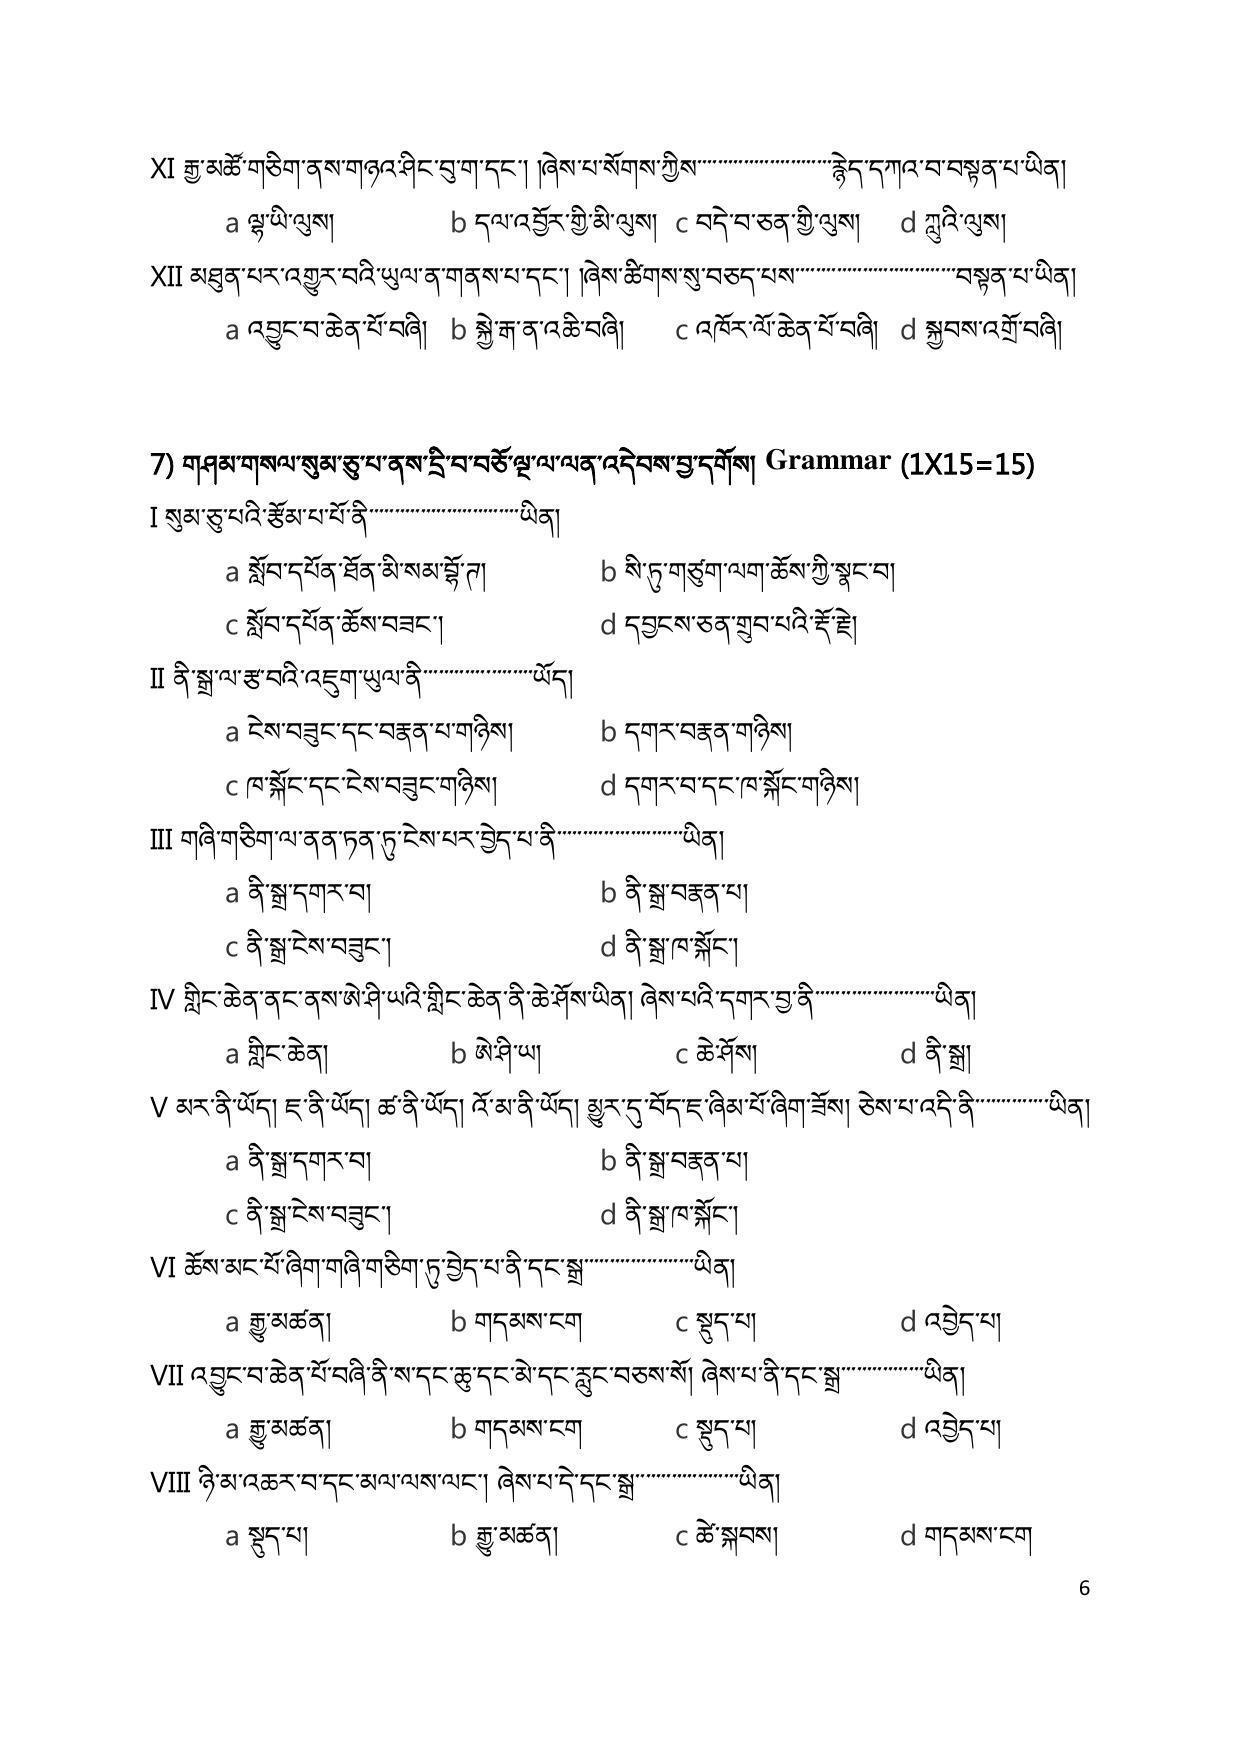 XI རྒྱ་མཚོ་གཅིག་ནས་གཉའ་ཤིང་བུ་ག་དང་། །ཞེས་པ་སོགས་ཀྱིས་་་་་་་་་་་་་་་་་་་་་་་་་་་རྙེད་དཀའ་བ་བསྟན་པ་ཡིན།
a ལྷ་ཡི་ལུས། b དལ་འབྱོར་གྱི་མི་ལུས། c བདེ་བ་ཅན་གྱི་ལུས། d ཀླུའི་ལུས།
XII མཐུན་པར་འགྱུར་བའི་ཡུལ་ན་གནས་པ་དང་། །ཞེས་ཚིགས་སུ་བཅད་པས་་་་་་་་་་་་་་་་་་་་་་་་་་་་་་་་བསྟན་པ་ཡིན།
a འབྱུང་བ་ཆེན་པོ་བཞི། b སྐྱེ་རྒ་ན་འཆི་བཞི། c འཁོར་ལོ་ཆེན་པོ་བཞི། d སྐྱབས་འགྲོ་བཞི།
7) གཤམ་གསལ་སུམ་ཅུ་པ་ནས་དྲི་བ་བཅོ་ལྔ་ལ་ལན་འདེབས་བྱ་དགོས། Grammar (1X15=15)
I སུམ་ཅུ་པའི་རྩོམ་པ་པོ་ནི་་་་་་་་་་་་་་་་་་་་་་་་་་་་་་ཡིན།
a སློབ་དཔོན་ཐོན་མི་སམ་བྷོ་ཊ། b སི་ཏུ་གཙུག་ལག་ཆོས་ཀྱི་སྣང་བ།
c སློབ་དཔོན་ཆོས་བཟང་། d དབྱངས་ཅན་གྲུབ་པའི་རྡོ་རྗེ།
II ནི་སྒྲ་ལ་རྩ་བའི་འཇུག་ཡུལ་ནི་་་་་་་་་་་་་་་་་་་་་་ཡོད།
a ངེས་བཟུང་དང་བརྣན་པ་གཉིས། b དགར་བརྣན་གཉིས།
c ཁ་སྐོང་དང་ངེས་བཟུང་གཉིས། d དགར་བ་དང་ཁ་སྐོང་གཉིས།
III གཞི་གཅིག་ལ་ནན་ཏན་ཏུ་ངེས་པར་བྱེད་པ་ནི་་་་་་་་་་་་་་་་་་་་་་་་་ཡིན།
a ནི་སྒྲ་དགར་བ། b ནི་སྒྲ་བརྣན་པ།
c ནི་སྒྲ་ངེས་བཟུང་། d ནི་སྒྲ་ཁ་སྐོང་།
IV གླིང་ཆེན་ནང་ནས་ཨེ་ཤི་ཡའི་གླིང་ཆེན་ནི་ཆེ་ཤོས་ཡིན། ཞེས་པའི་དགར་བྱ་ནི་་་་་་་་་་་་་་་་་་་་་་་་ཡིན།
a གླིང་ཆེན། b ཨེ་ཤི་ཡ། c ཆེ་ཤོས། d ནི་སྒྲ།
V མར་ནི་ཡོད། ཇ་ནི་ཡོད། ཚ་ནི་ཡོད། འོ་མ་ནི་ཡོད། མྱུར་དུ་བོད་ཇ་ཞིམ་པོ་ཞིག་ཟོས། ཅེས་པ་འདི་ནི་་་་་་་་་་་་་་་ཡིན།
a ནི་སྒྲ་དགར་བ། b ནི་སྒྲ་བརྣན་པ།
c ནི་སྒྲ་ངེས་བཟུང་། d ནི་སྒྲ་ཁ་སྐོང་།
VI ཆོས་མང་པོ་ཞིག་གཞི་གཅིག་ཏུ་བྱེད་པ་ནི་དང་སྒྲ་་་་་་་་་་་་་་་་་་་་་་ཡིན།
a རྒྱུ་མཚན། b གདམས་ངག c སྡུད་པ། d འབྱེད་པ།
VII འབྱུང་བ་ཆེན་པོ་བཞི་ནི་ས་དང་ཆུ་དང་མེ་དང་རླུང་བཅས་སོ། ཞེས་པ་ནི་དང་སྒྲ་་་་་་་་་་་་་་་་་ཡིན།
a རྒྱུ་མཚན། b གདམས་ངག c སྡུད་པ། d འབྱེད་པ།
VIII ཉི་མ་འཆར་བ་དང་མལ་ལས་ལང་། ཞེས་པ་དེ་དང་སྒྲ་་་་་་་་་་་་་་་་་་་་་ཡིན།
a སྡུད་པ། b རྒྱུ་མཚན། c ཚེ་སྐབས། d གདམས་ངག
6